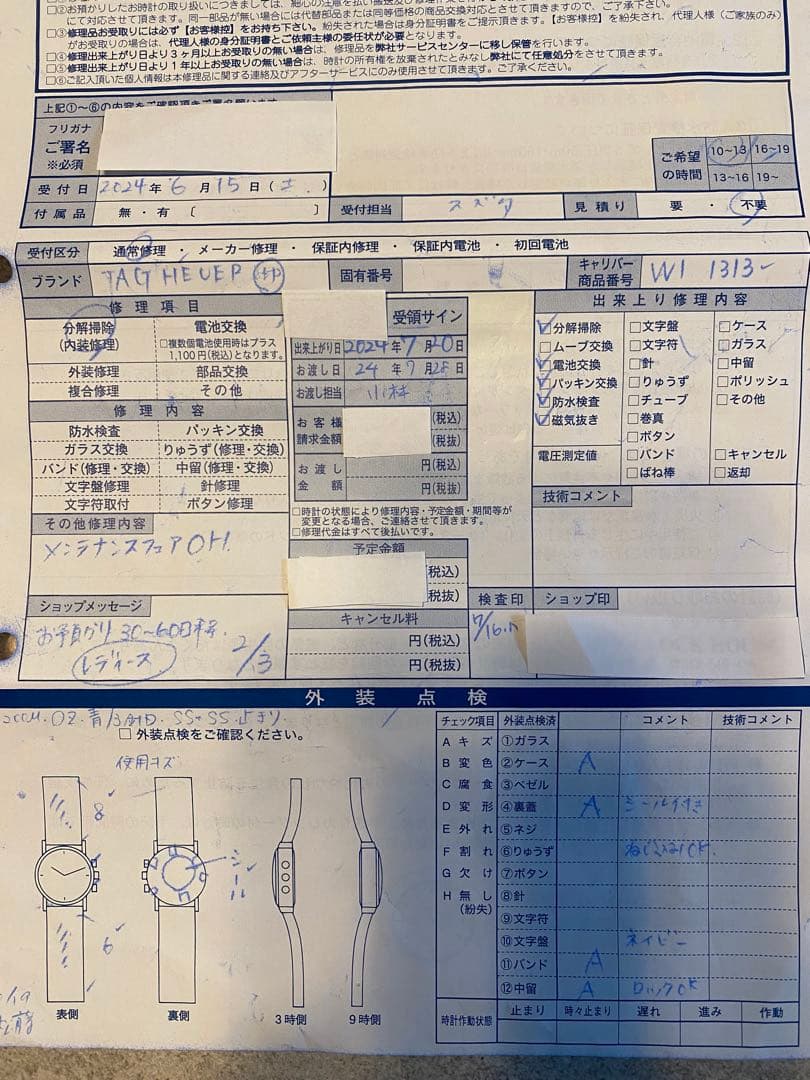 ②お預かりしたお時計の取り扱いにつきましては、細心の注意を払い
にて対応させて頂きます。同一部品が無い場合には代替部品または同等価格の商品交換対応とさせて頂きますので、ご了承下さい。
③修理品お受取りには必ず【お客様控】をお持ち下さい。紛失された場合は身分証明書をご提示頂きます。【お客様控】を紛失され、代理人様（ご家族のみ）
がお受取りの場合は、代理人様の身分証明書とご依頼主様の委任状が必要となります。
④修理出来上がり日より3ヶ月以上お受取りの無い場合は、修理品を弊社サービスセンターに移し保管を行います。
⑤修理出来上がり日より1年以上お受取りの無い場合は、時計の所有権を放棄されたとみなし弊社にて任意処分をさせて頂きます。
⑥ご記入頂いた個人情報は本修理品に関する連絡及びアフターサービスにのみ使用させて頂きます。ご了承ください。
上記①〜⑥の内容をご確認頂き
フリガナ
ご署名
※必須
ご希望の時間
10~13 16~19
13~16 19~
受付日 2024年 6月 15日(土)
付属品 無・有〔 〕 受付担当 スズタ 見積り 要・不要
受付区分 通常修理 ・ メーカー修理 ・ 保証内修理 ・ 保証内電池 ・ 初回電池
ブランド TAG HEUER 固有番号 キャリバー商品番号 W1 1313~
修理項目 受領サイン 出来上り修理内容
分解掃除(内装修理) 電池交換
□複数個電池使用時はプラス1,100円(税込)となります。
外装修理 部品交換
複合修理 その他
修理内容
防水検査 パッキン交換
ガラス交換 りゅうず(修理・交換)
バンド(修理・交換) 中留(修理・交換)
文字盤修理 針修理
文字符取付 ボタン修理
その他修理内容
メンテナンスフェアOH
ショップメッセージ
お預かり30~60日
レディース
2/13
出来上がり日 2024年7月20日
お渡し日 24年7月28日
お渡し担当 小林
お客様請求金額 (税込)
(税抜)
お渡し金額 円(税込)
円(税抜)
□時計の状態により修理内容・予定金額・期間等が
変更となる場合、ご連絡させて頂きます。
□修理代金はすべて後払いです。
予定金額
(税込)
(税抜)
キャンセル料
円(税込)
円(税抜)
検査印 ショップ印
7/16
☑分解掃除 □文字盤 □ケース
□ムーブ交換 □文字符 □ガラス
☑電池交換 □針 □中留
☑パッキン交換 □りゅうず □ポリッシュ
☑防水検査 □チューブ □その他
☑磁気抜き □巻真
□ボタン
電圧測定値 □バンド □キャンセル
□ばね棒 □返却
技術コメント
外装点検
□外装点検をご確認ください。
使用キズ
8
6
シール
表側 裏側 3時側 9時側
チェック項目 外装点検済 コメント 技術コメント
A キズ ①ガラス
B 変色 ②ケース A
C 腐食 ③ベゼル
D 変形 ④裏蓋 A シール付き
E 外れ ⑤ネジ
F 割れ ⑥りゅうず ねじ込みOK
G 欠け ⑦ボタン
H 無し(紛失) ⑧針
⑨文字符
⑩文字盤 ネイビー
⑪バンド A
⑫中留 A ロックOK
時計作動状態 止まり 時々止まり 遅れ 進み 作動